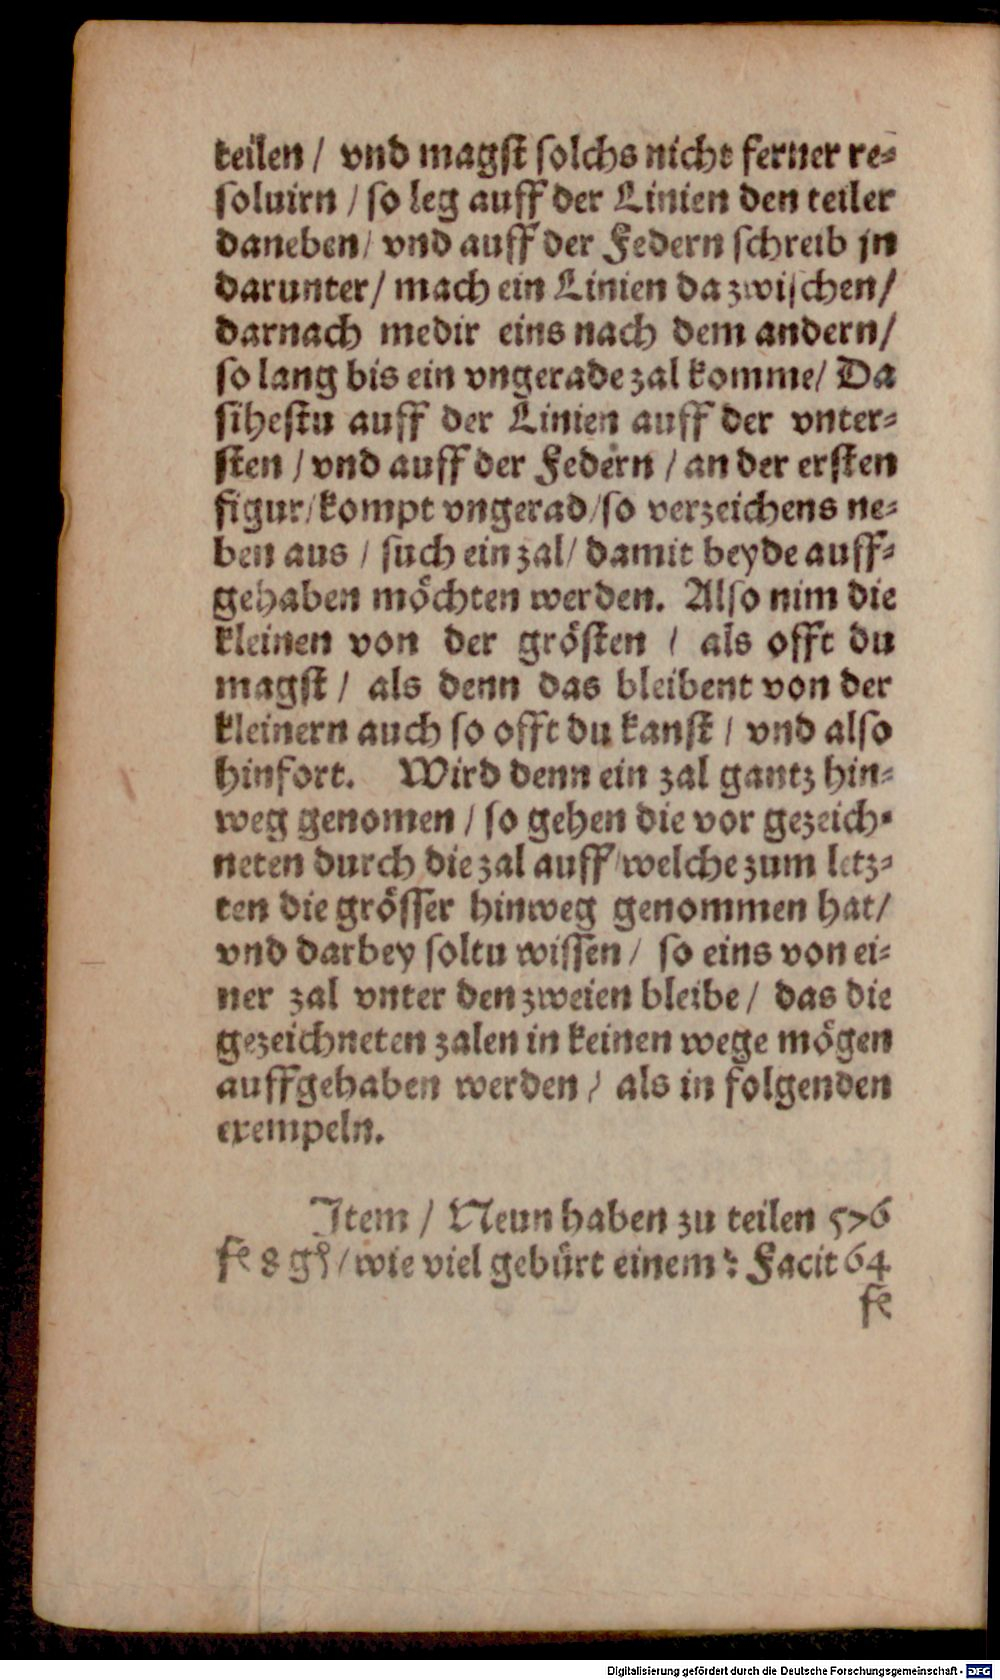 teilen / vnd magst solchs nicht ferner re-
soluirn / so leg auff der Linien den teiler
daneben / vnd auff der Federn schreib jn
darunter / mach ein Linien da zwischen /
darnach medir eins nach dem andern /
so lang bis ein vngerade zal komme / Da
sihestu auff der Linien auff der vnter-
sten / vnd auff der Federn / an der ersten
figur / kompt vngerad / so verzeichens ne-
ben aus / such ein zal / damit beyde auff-
gehaben möchten werden. Also nim die
kleinen von der grösten / als offt du
magst / als denn das bleibent von der
kleinern auch so offt du kanst / vnd also
hinfort. Wird denn ein zal gantz hin-
weg genomen / so gehen die vor gezeich-
neten durch die zal auff / welche zum letz-
ten die grösser hinweg genommen hat /
vnd darbey soltu wissen / so eins von ei-
ner zal vnter den zweien bleibe / das die
gezeichneten zalen in keinen wege mögen
auffgehaben werden / als in folgenden
exempeln.
Item / Neun haben zu teilen 576
fe 8 gſ / wie viel gebürt einem? Facit 64
fe
Digitalisierung gefördert durch die Deutsche Forschungsgemeinschaft - DFG